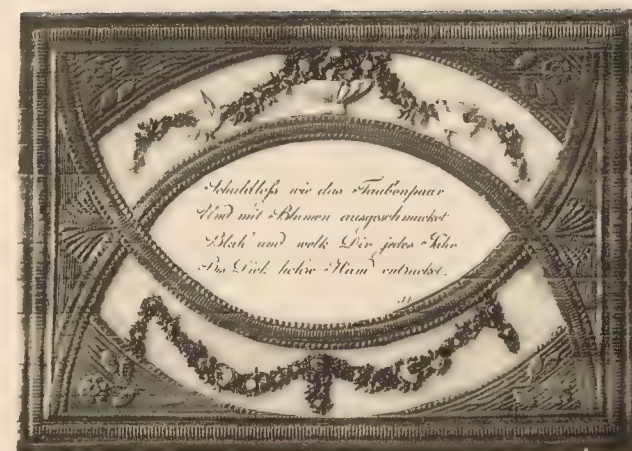 Schuldloß wie das Taubenpaar
Und mit Blumen ausgeschmücket
Blüh' und welk Dir jedes Jahr
Bis Dich höhre Hand entrücket.